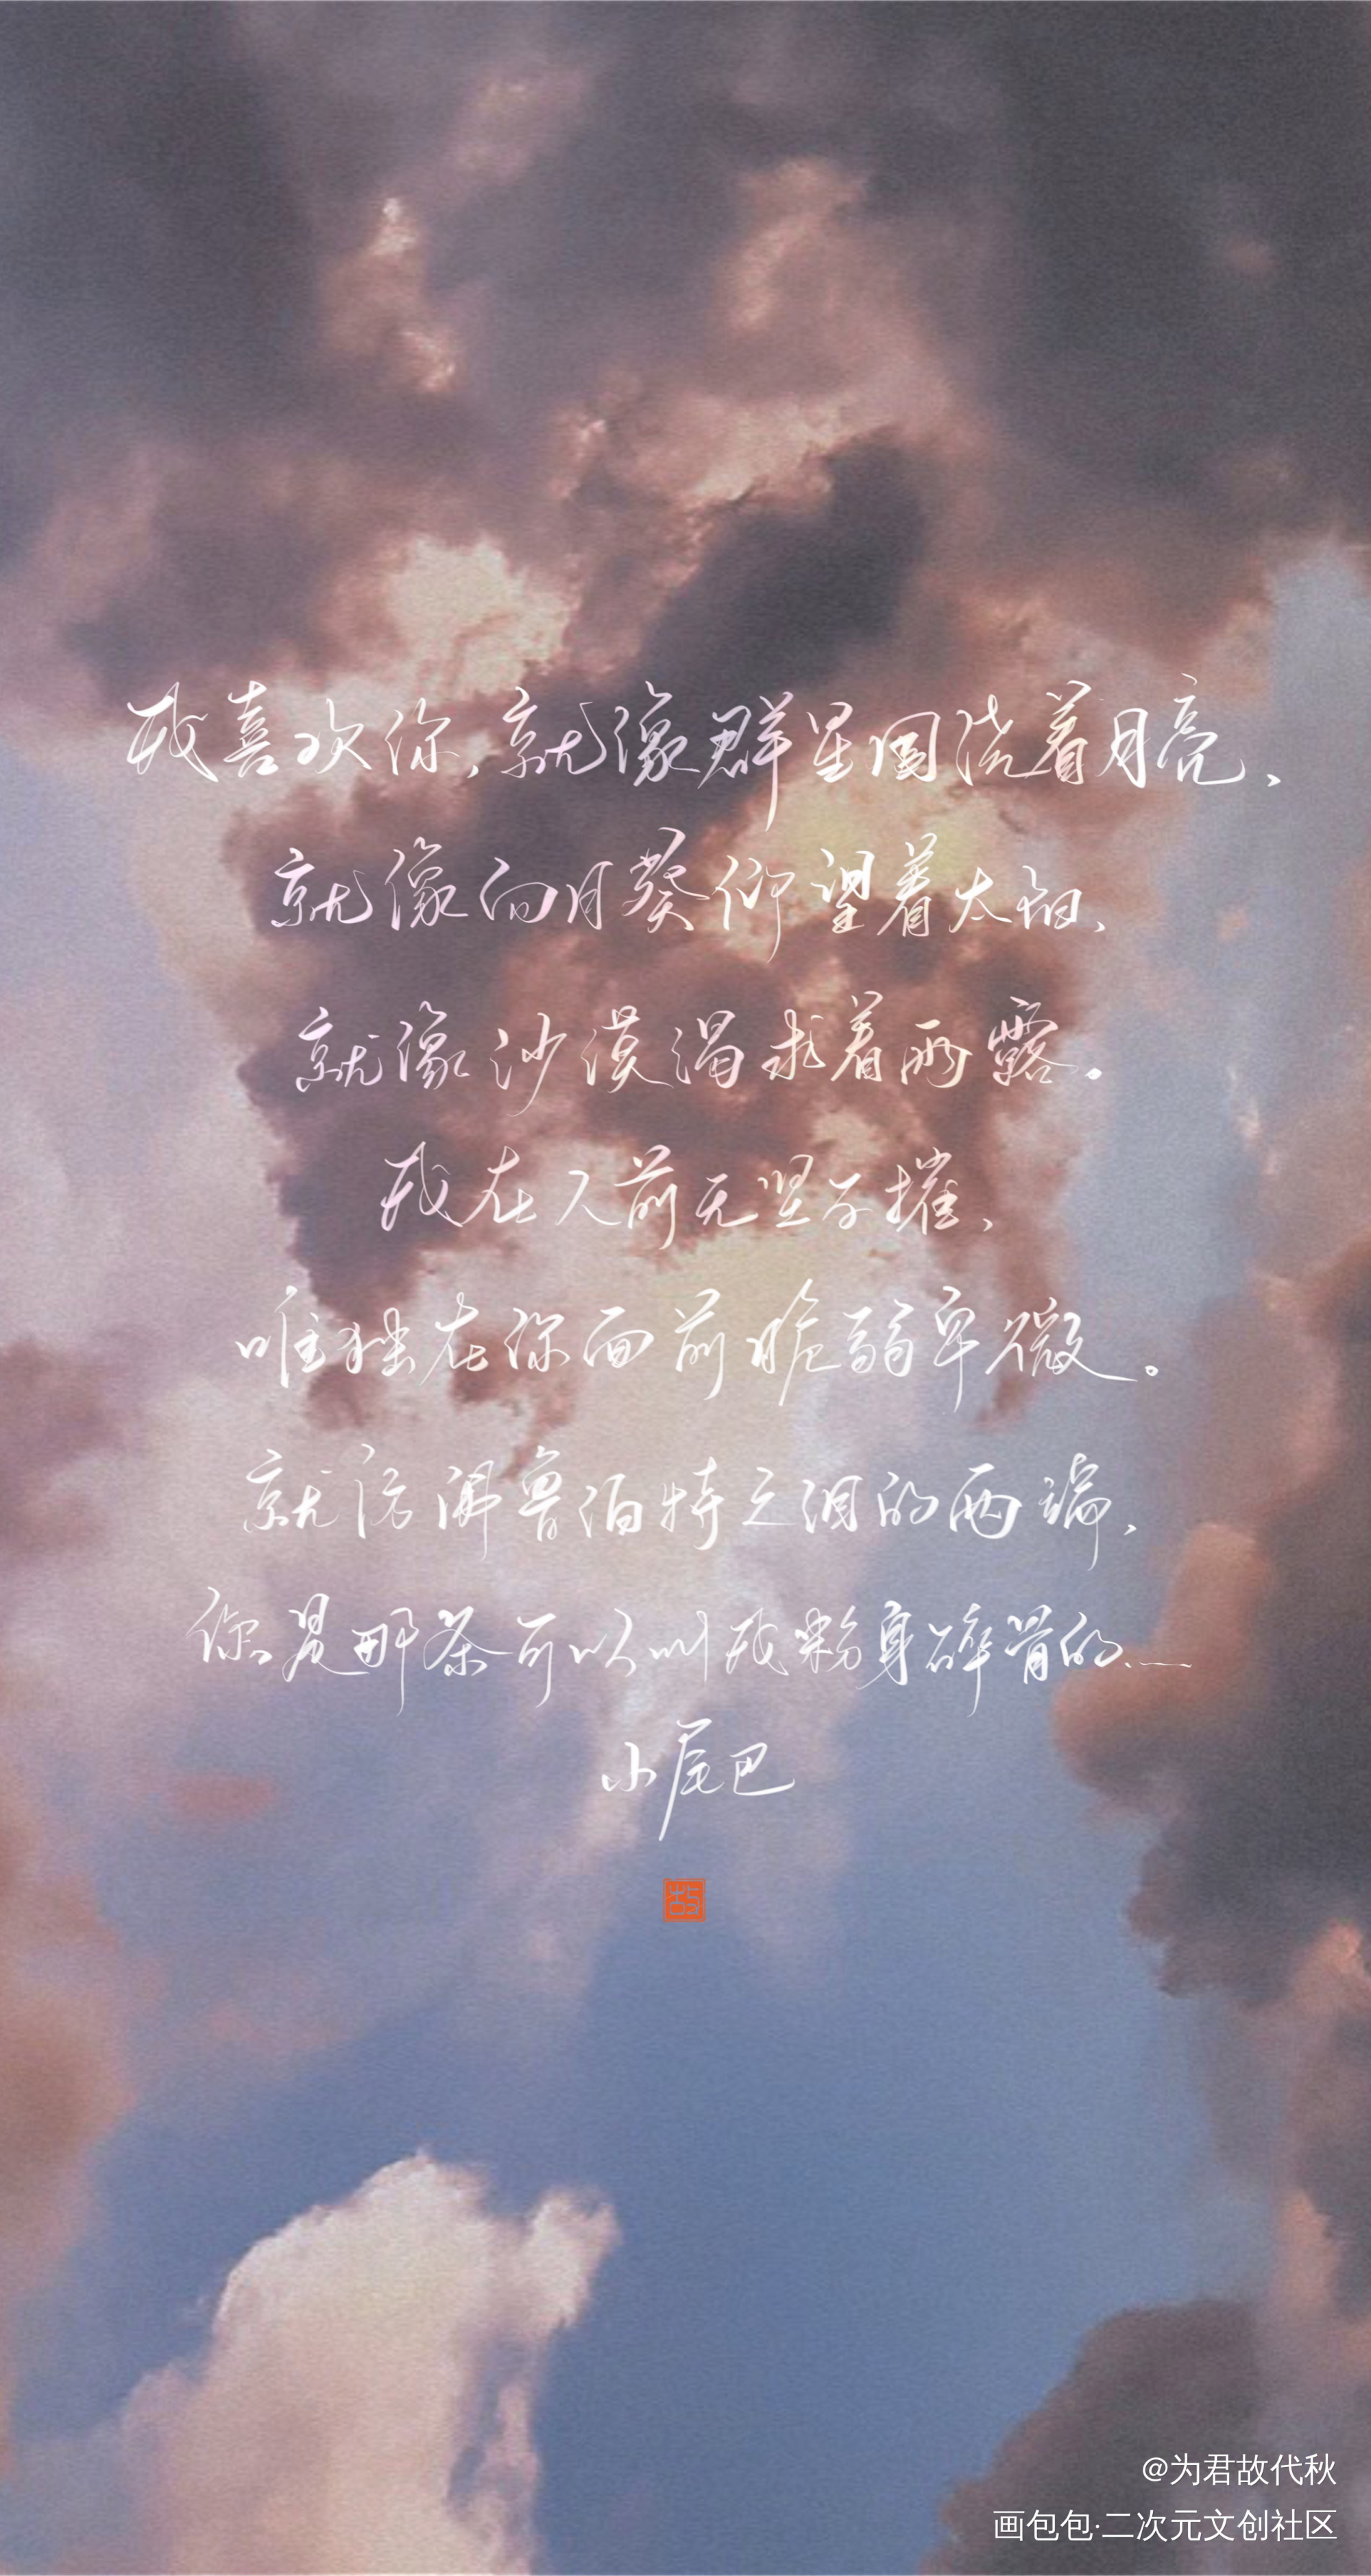 我喜欢你,就像群星围绕着月亮、
就像向日葵仰望着太阳、
就像沙漠渴求着雨露。
我在人前无坚不摧,
唯独在你面前脆弱卑微。
就仿佛鲁伯特之泪的两端,
你是那条可以叫我粉身碎骨的……
小尾巴
@为君故代秋
画包包·二次元文创社区